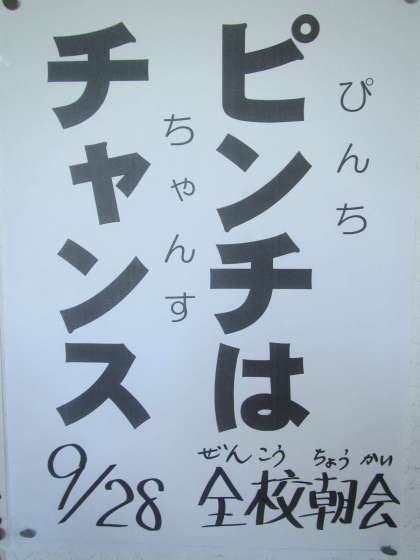 ピンチは
ぴんち
チャンス
ちゃんす
ぜんこう ちょうかい
全校朝会
9/28